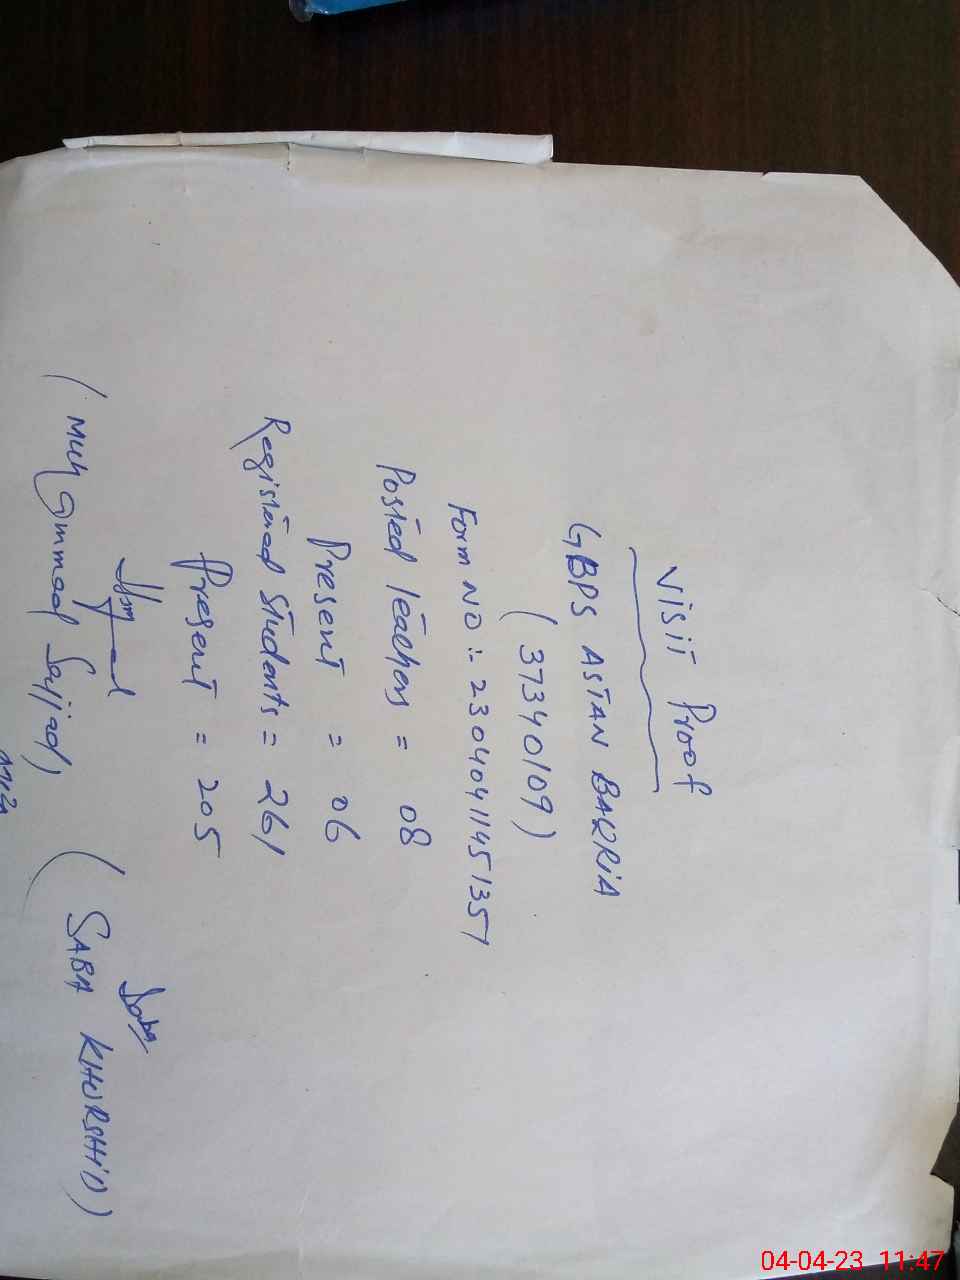 Visit Proof
GBPS ASTAN BAKRIA
(37340109)
Form NO :- 2304041145 1351
Posted Teachers = 08
Present = 06
Registered Students = 261
Present = 205
Saba
(Muhammad Sajjad) (SABA KHURSHID)
04-04-23 11:47